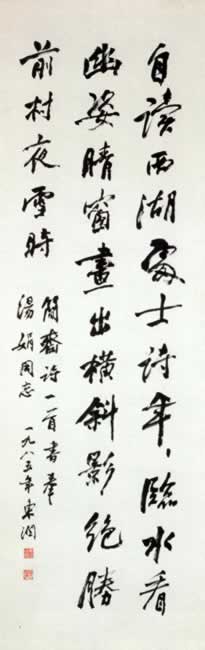 自讀西湖處士詩年、臨水看
幽姿晴窗畫出橫斜影絶勝
前村夜雪時
簡齋詩一首書奉
湯娟同志 一九八五年東潤